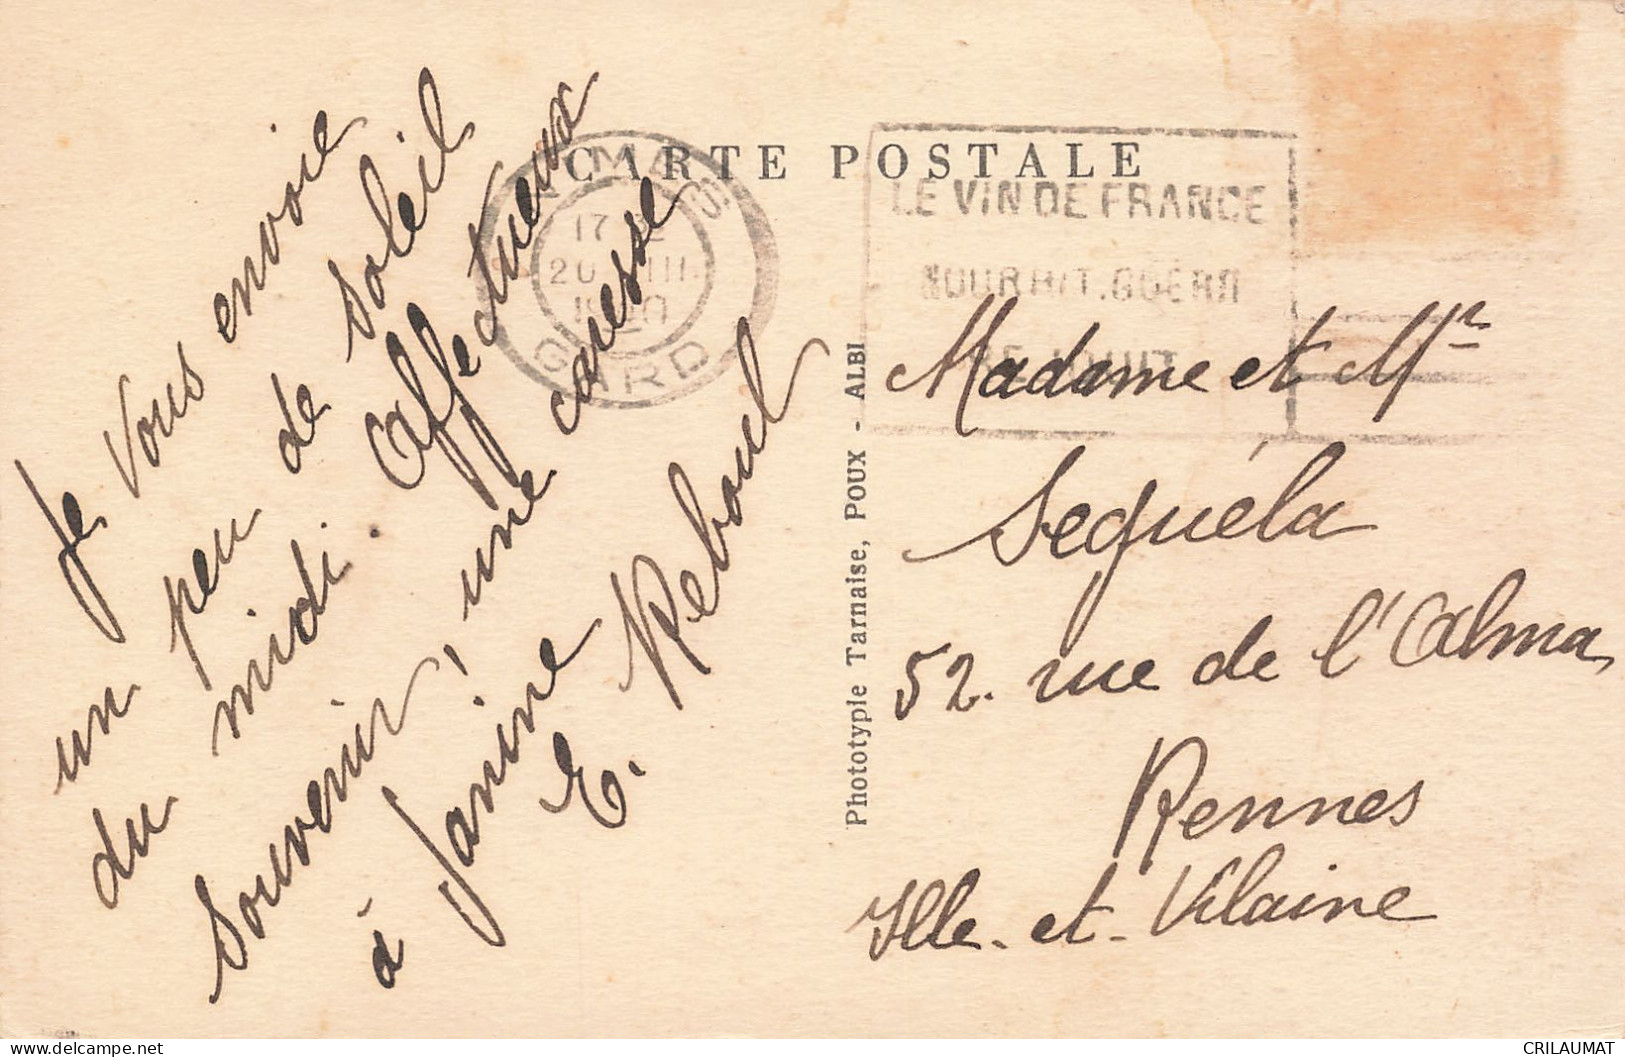 CARTE POSTALE
NIMES
17
GARD
LE VIN DE FRANCE
NOURRIT. GUERIT
REJOUIT
Je vous envoie
un peu de soleil
du midi. Affectueux
souvenir ! une caresse
à Janine
E. Reboul
Phototypie Tarnaise, POUX - ALBI
Madame et Mr
Sequéla
52. rue de l'Alma,
Rennes
Ille-et-Vilaine
delcampe.net
CRILAUMAT